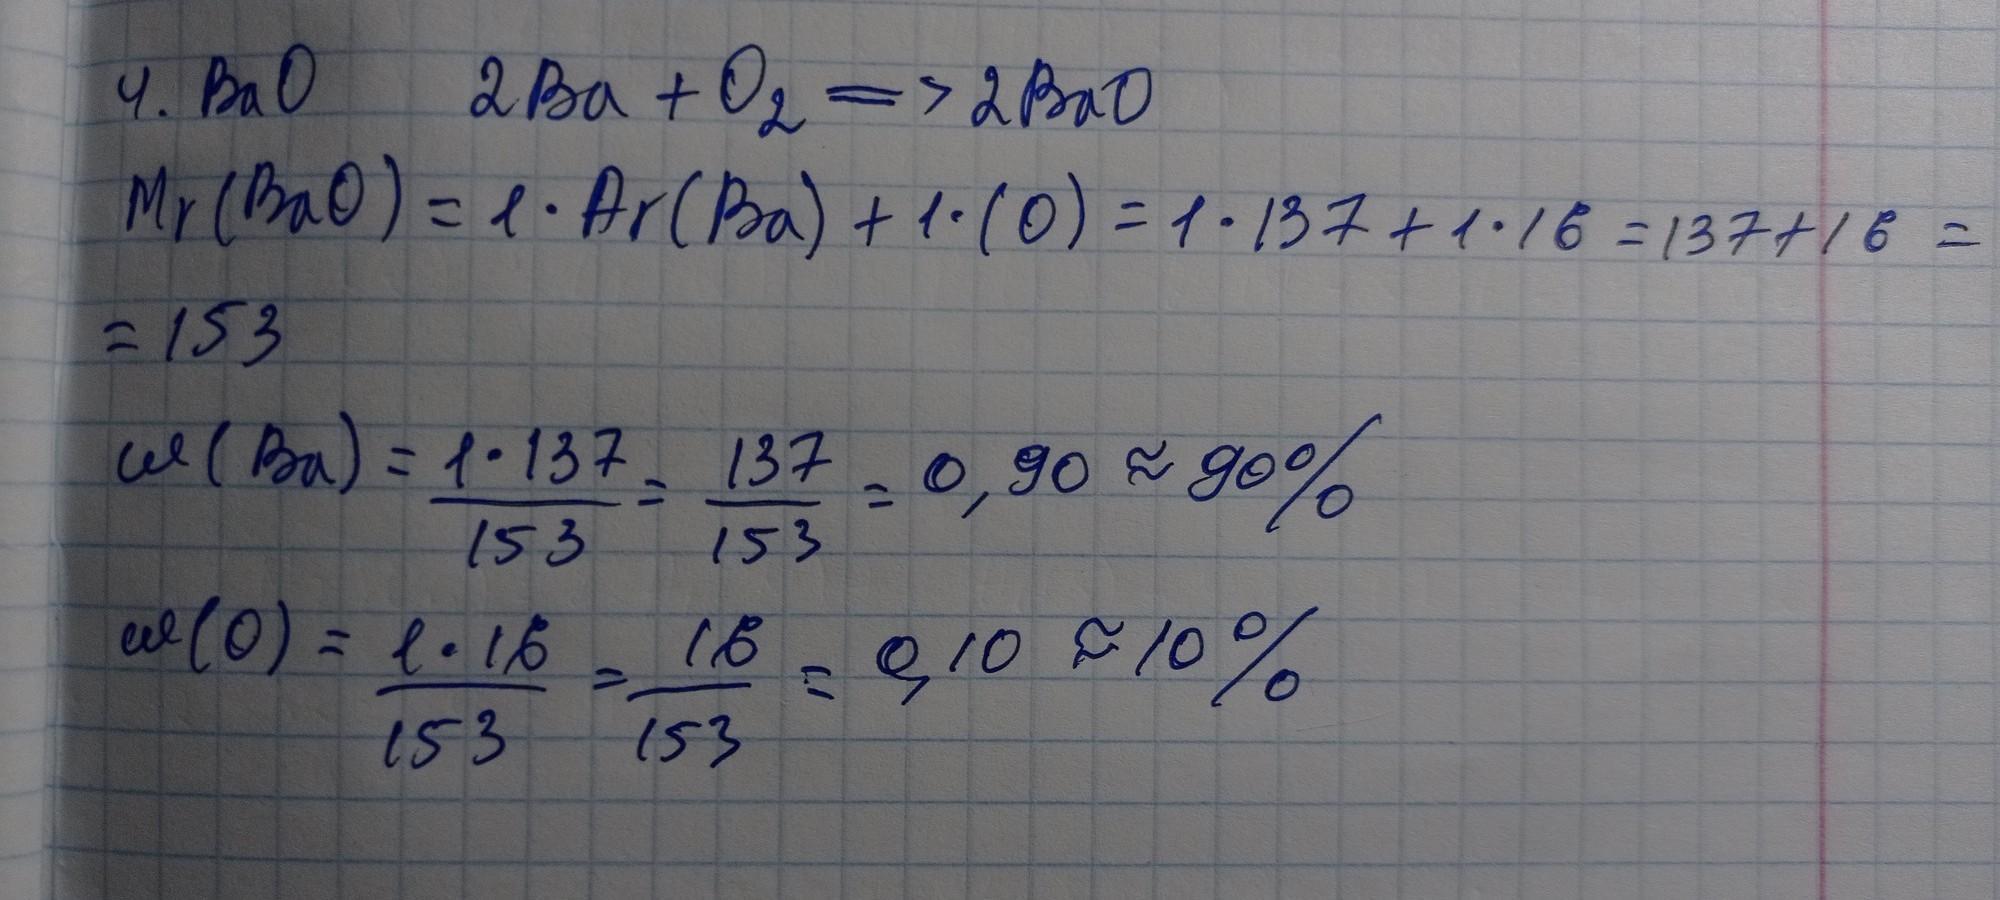 4. BaO 2Ba + O₂ => 2BaO
Mr(BaO) = 1·Ar(Ba) + 1·(O) = 1·137 + 1·16 = 137 + 16 =
= 153
ω(Ba) = 1·137/153 = 137/153 = 0,90 ≈ 90%
ω(O) = 1·16/153 = 16/153 = 0,10 ≈ 10%